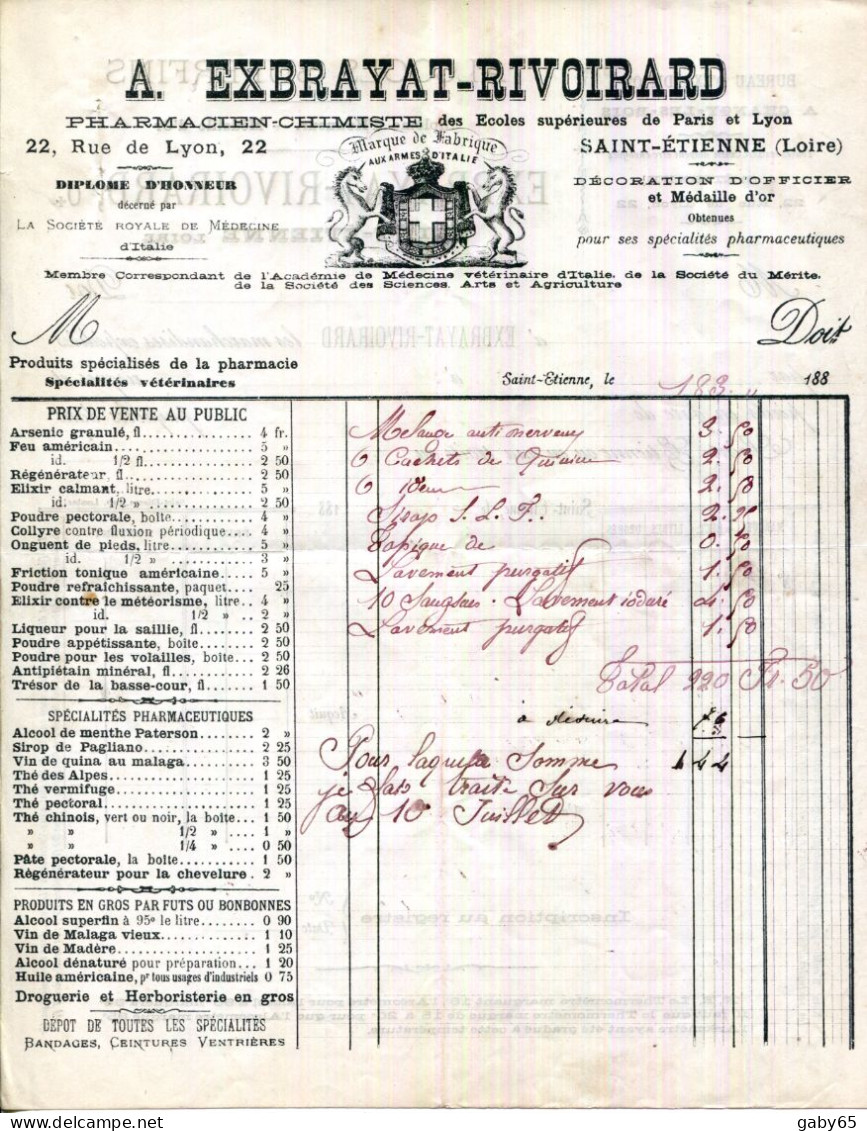 A. EXBRAYAT-RIVOIRARD
PHARMACIEN-CHIMISTE des Ecoles supérieures de Paris et Lyon
22, Rue de Lyon, 22
Marque de Fabrique
AUX ARMES D'ITALIE
SAINT-ÉTIENNE (Loire)
DIPLOME D'HONNEUR
décerné par
LA SOCIÉTÉ ROYALE DE MÉDECINE
d'Italie
DÉCORATION D'OFFICIER
et Médaille d'or
Obtenues
pour ses spécialités pharmaceutiques
Membre Correspondant de l'Académie de Médecine vétérinaire d'Italie, de la Société du Mérite,
de la Société des Sciences, Arts et Agriculture
M Doit
Produits spécialisés de la pharmacie
Spécialités vétérinaires
Saint-Etienne, le 188
183 "
PRIX DE VENTE AU PUBLIC
Arsenic granulé, fl. 4 fr.
Feu américain 5 »
id. 1/2 fl. 2 50
Régénérateur, fl. 2 50
Elixir calmant, litre. 5 »
id. 1/2 » 2 50
Poudre pectorale, boîte 4 »
Collyre contre fluxion périodique 4 »
Onguent de pieds, litre 5 »
id. 1/2 » 3 »
Friction tonique américaine 5 »
Poudre refraîchissante, paquet 25
Elixir contre le météorisme, litre 4 »
id. 1/2 » 2 »
Liqueur pour la saillie, fl. 2 50
Poudre appétissante, boîte 2 50
Poudre pour les volailles, boîte 2 50
Antipiétain minéral, fl. 2 26
Trésor de la basse-cour, fl. 1 50
SPÉCIALITÉS PHARMACEUTIQUES
Alcool de menthe Paterson 2 »
Sirop de Pagliano 2 25
Vin de quina au malaga 3 50
Thé des Alpes 1 25
Thé vermifuge 1 25
Thé pectoral 1 25
Thé chinois, vert ou noir, la boîte 1 50
» » 1/2 » 1 »
» » 1/4 » 0 50
Pâte pectorale, la boîte 1 50
Régénérateur pour la chevelure 2 »
PRODUITS EN GROS PAR FUTS OU BONBONNES
Alcool superfin à 95° le litre 0 90
Vin de Malaga vieux 1 10
Vin de Madère 1 25
Alcool dénaturé pour préparation 1 20
Huile américaine, pr tous usages d'industriels 0 75
Droguerie et Herboristerie en gros
DÉPOT DE TOUTES LES SPÉCIALITÉS
BANDAGES, CEINTURES VENTRIÈRES
Melange anti nerveux 3. 50
6 Cachets de Quinine 2. 50
6 idem 2. 50
S. L. F. 2.
de 0. 50
Lavement purgatif 1. 50
10 Lavement ioduré 4. 50
Lavement purgatif 1. 50
Total 220 Fr. 50
à déduire 76
Pour laquelle Somme 144
je fais traite sur vous
au 10 Juillet
gaby65